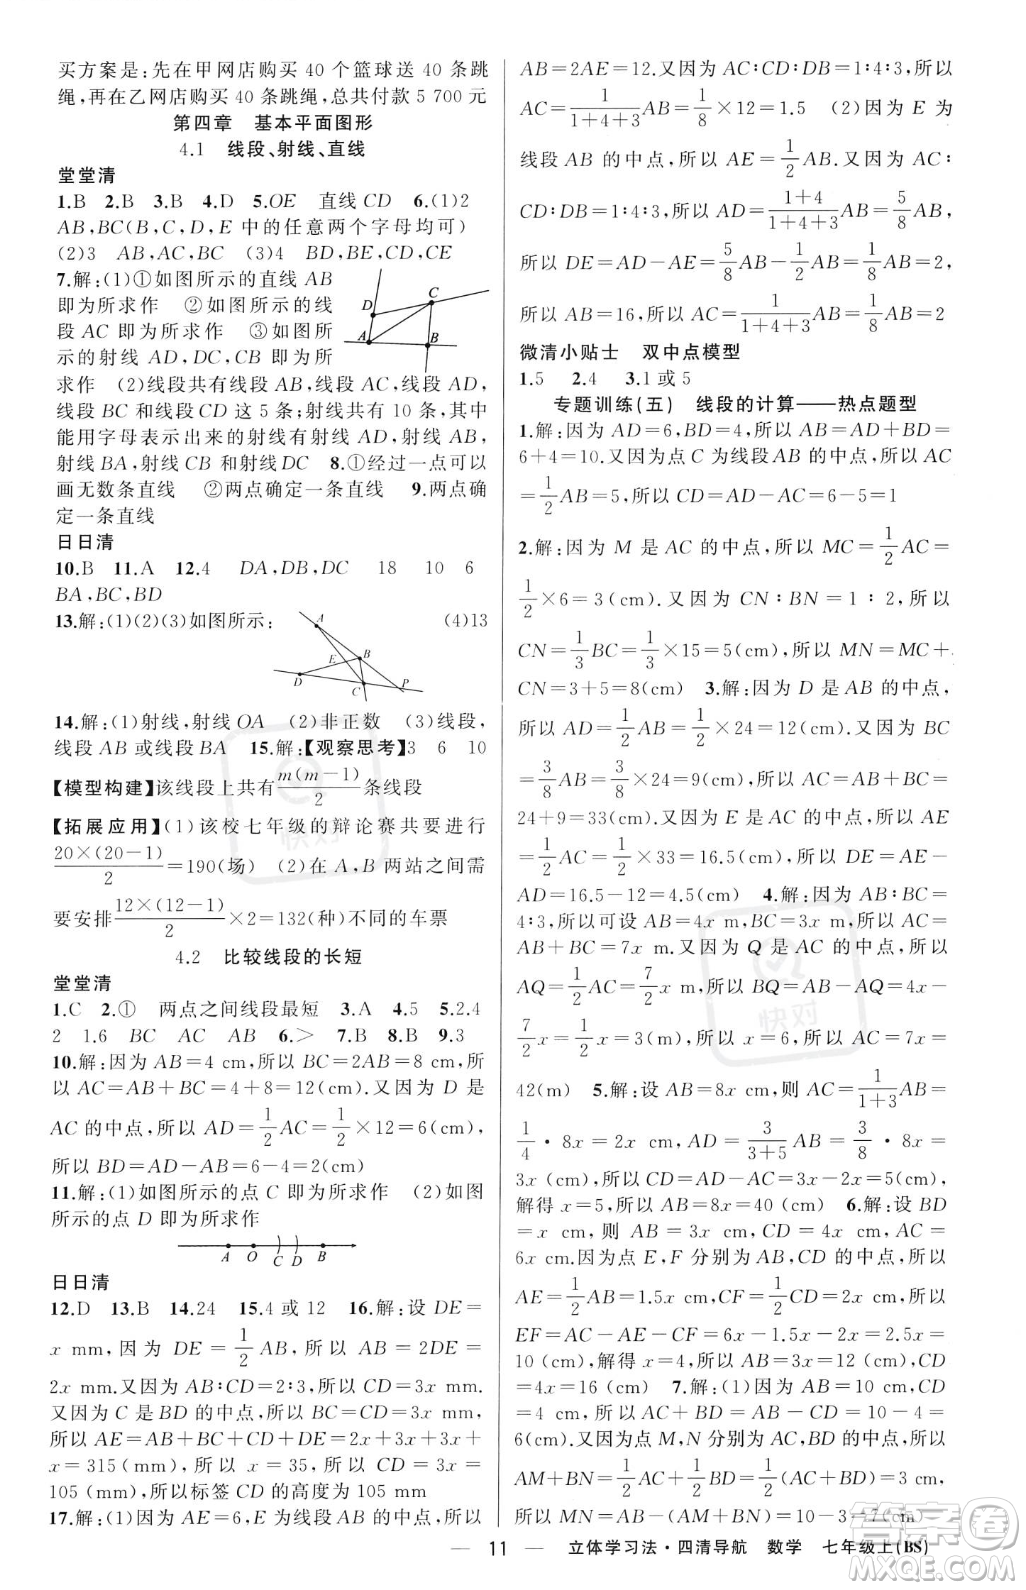 买方案是:先在甲网店购买 40 个篮球送 40 条跳
绳,再在乙网店购买 40 条跳绳,总共付款 5 700 元
第四章 基本平面图形
4.1 线段、射线、直线
堂堂清
1.B 2.B 3.B 4.D 5.OE 直线 CD 6.(1)2
AB,BC(B,C,D,E 中的任意两个字母均可)
(2)3 AB,AC,BC (3)4 BD,BE,CD,CE
7.解:(1)①如图所示的直线 AB
即为所求作 ②如图所示的线
段 AC 即为所求作 ③如图所
示的射线 AD,DC,CB 即为所
求作 (2)线段共有线段 AB,线段 AC,线段 AD,
线段 BC 和线段 CD 这 5 条;射线共有 10 条,其中
能用字母表示出来的射线有射线 AB,射线 AD,
射线 BA,射线 CB 和射线 DC 8.①经过一点可以
画无数条直线 ②两点确定一条直线 9.两点确
定一条直线
D
C
A
B
日日清
10.B 11.A 12.4 DA,DB,DC 18 10 6
BA,BC,BD
13.解:(1)(2)(3)如图所示: (4)13
A
E
B
D
C
P
14.解:(1)射线,射线 OA (2)非正数 (3)线段,
线段 AB 或线段 BA 15.解:【观察思考】3 6 10
【模型构建】该线段上共有 m(m-1)/2 条线段
【拓展应用】(1)该校七年级的辩论赛共要进行
20×(20-1)/2=190(场) (2)在 A,B 两站之间需
要安排 12×(12-1)/2×2=132(种)不同的车票
4.2 比较线段的长短
堂堂清
1.C 2.① 两点之间线段最短 3.A 4.5 5.2.4
2 1.6 BC AC AB 6.> 7.B 8.B 9.3
10.解:因为 AB=4 cm,所以 BC=2AB=8 cm,所
以 AC=AB+BC=4+8=12(cm).又因为 D 是
AC 的中点,所以 AD=1/2AC=1/2×12=6(cm),
所以 BD=AD-AB=6-4=2(cm)
11.解:(1)如图所示的点 C 即为所求作 (2)如图
所示的点 D 即为所求作
A O C D B
日日清
12.D 13.B 14.24 15.4 或 12 16.解:设 DE=
x mm,因为 DE=1/2AB,所以 AB=2DE=
2x mm.又因为 AB:CD=2:3,所以 CD=3x mm.
又因为 C 是 BD 的中点,所以 BC=CD=3x mm,
所以 AE=AB+BC+CD+DE=2x+3x+3x+
x=315(mm),所以 x=35,所以 CD=3x=
105 (mm),所以标签 CD 的高度为 105 mm
17.解:(1)因为 AE=6,E 为线段 AB 的中点,所以
AB=2AE=12.又因为 AC:CD:DB=1:4:3,所以
AC=1/(1+4+3)AB=1/8×12=1.5 (2)因为 E 为
线段 AB 的中点,所以 AE=1/2AB.又因为 AC:
CD:DB=1:4:3,所以 AD=(1+4)/(1+4+3)AB=5/8AB,
所以 DE=AD-AE=5/8AB-1/2AB=1/8AB=2,
所以 AB=16,所以 AC=1/(1+4+3)AB=1/8AB=2
微清小贴士 双中点模型
1.5 2.4 3.1 或 5
专题训练(五) 线段的计算——热点题型
1.解:因为 AD=6,BD=4,所以 AB=AD+BD=
6+4=10.又因为点 C 为线段 AB 的中点,所以 AC
=1/2AB=5,所以 CD=AD-AC=6-5=1
2.解:因为 M 是 AC 的中点,所以 MC=1/2AC=
1/2×6=3(cm).又因为 CN:BN=1:2,所以
CN=1/3BC=1/3×15=5(cm),所以 MN=MC+
CN=3+5=8(cm) 3.解:因为 D 是 AB 的中点,
所以 AD=1/2AB=1/2×24=12(cm).又因为 BC
=3/8AB=3/8×24=9(cm),所以 AC=AB+BC=
24+9=33(cm).又因为 E 是 AC 的中点,所以
AE=1/2AC=1/2×33=16.5(cm),所以 DE=AE-
AD=16.5-12=4.5(cm) 4.解:因为 AB:BC=
4:3,所以可设 AB=4x m,BC=3x m,所以 AC=
AB+BC=7x m.又因为 Q 是 AC 的中点,所以
AQ=1/2AC=7/2x m,所以 BQ=AB-AQ=4x-
7/2x=1/2x=3,所以 x=6,所以 AC=7x=
42(m) 5.解:设 AB=8x cm,则 AC=1/(1+3)AB=
1/4·8x=2x cm,AD=3/(3+5)AB=3/8·8x=
3x (cm),所以 CD=AD-AC=3x-2x=5(cm),
解得 x=5,所以 AB=8x=40 (cm) 6.解:设 BD
=x cm,则 AB=3x cm,CD=4x cm,AC=
6x cm.因为点 E,F 分别为 AB,CD 的中点,所以
AE=1/2AB=1.5x cm,CF=1/2CD=2x cm,所以
EF=AC-AE-CF=6x-1.5x-2x=2.5x=
10 (cm),解得 x=4,所以 AB=3x=12(cm),CD
=4x=16(cm) 7.解:(1)因为 AB=10 cm,CD=
4 cm,所以 AC+BD=AB-CD=10-4=
6(cm).又因为点 M,N 分别为 AC,BD 的中点,所以
AM+BN=1/2AC+1/2BD=1/2(AC+BD)=3 cm,
所以 MN=AB-(AM+BN)=10-3=7(cm)
11 立体学习法·四清导航 数学 七年级上(BS)
快对
快对
答案圈
MXQE.COM